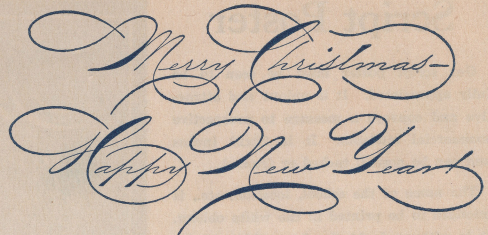 Merry Christmas—
Happy New Year!